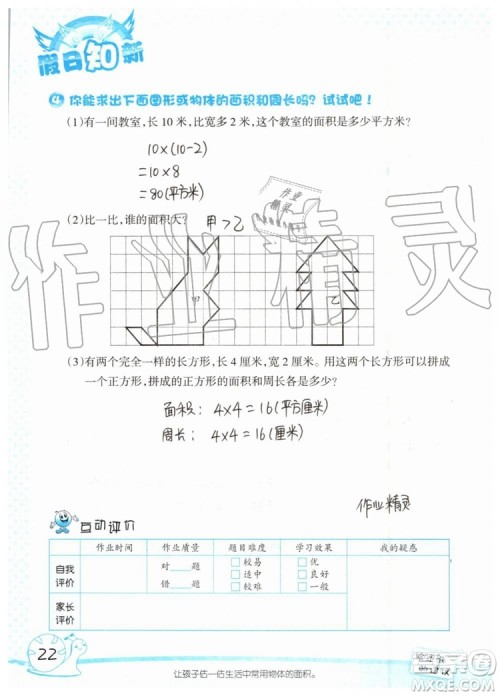 假日知新
4 你能求出下面图形或物体的面积和周长吗？试试吧！
(1)有一间教室，长10米，比宽多2米，这个教室的面积是多少平方米？
10×(10-2)
=10×8
=80(平方米)
(2)比一比，谁的面积大？ 甲>乙
甲 乙
(3)有两个完全一样的长方形，长4厘米，宽2厘米。用这两个长方形可以拼成
一个正方形，拼成的正方形的面积和周长各是多少？
面积：4×4=16(平方厘米)
周长：4×4=16(厘米)
作业精灵
互动评价
作业时间 作业质量 题目难度 学习效果 我的疑惑
自我评价 对____题 错____题 □较易 □适中 □较难 □优 □良好 □一般
家长评价
22
让孩子估一估生活中常用物体的面积。
作业精灵
作业精灵